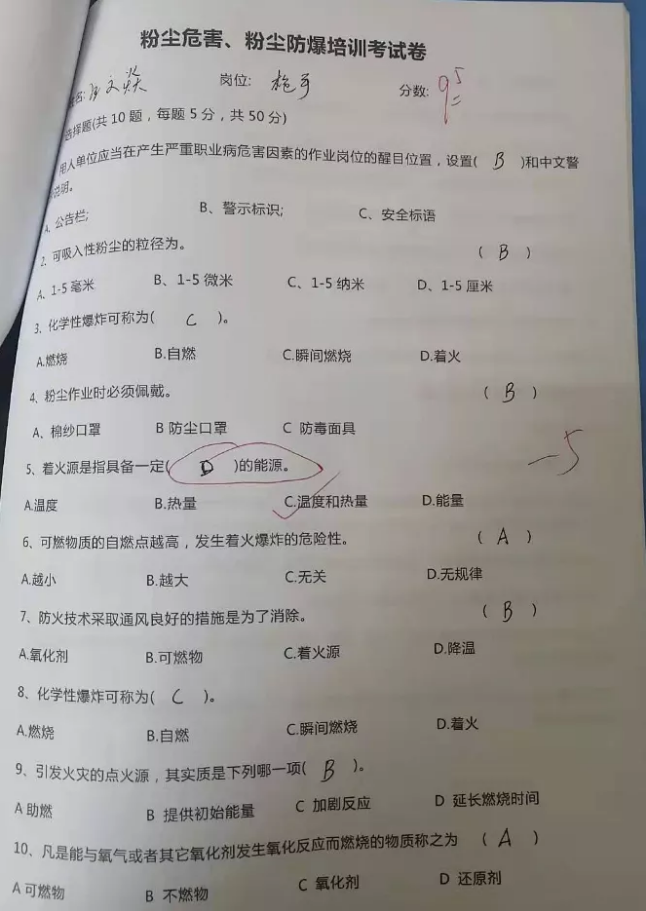 粉尘危害、粉尘防爆培训考试卷
岗位: 枪手 分数: 95
选择题(共 10 题，每题 5 分，共 50 分)
用人单位应当在产生严重职业病危害因素的作业岗位的醒目位置，设置( B )和中文警
说明。
A、公告栏; B、警示标识; C、安全标语
2、可吸入性粉尘的粒径为。 ( B )
A、1-5 毫米 B、1-5 微米 C、1-5 纳米 D、1-5 厘米
3、化学性爆炸可称为( C )。
A.燃烧 B.自燃 C.瞬间燃烧 D.着火
4、粉尘作业时必须佩戴。 ( B )
A、棉纱口罩 B 防尘口罩 C 防毒面具
5、着火源是指具备一定( D )的能源。 -5
A.温度 B.热量 C.温度和热量 D.能量
6、可燃物质的自燃点越高，发生着火爆炸的危险性。 ( A )
A.越小 B.越大 C.无关 D.无规律
7、防火技术采取通风良好的措施是为了消除。 ( B )
A.氧化剂 B.可燃物 C.着火源 D.降温
8、化学性爆炸可称为( C )。
A.燃烧 B.自燃 C.瞬间燃烧 D.着火
9、引发火灾的点火源，其实质是下列哪一项( B )。
A 助燃 B 提供初始能量 C 加剧反应 D 延长燃烧时间
10、凡是能与氧气或者其它氧化剂发生氧化反应而燃烧的物质称之为 ( A )
A 可燃物 B 不燃物 C 氧化剂 D 还原剂